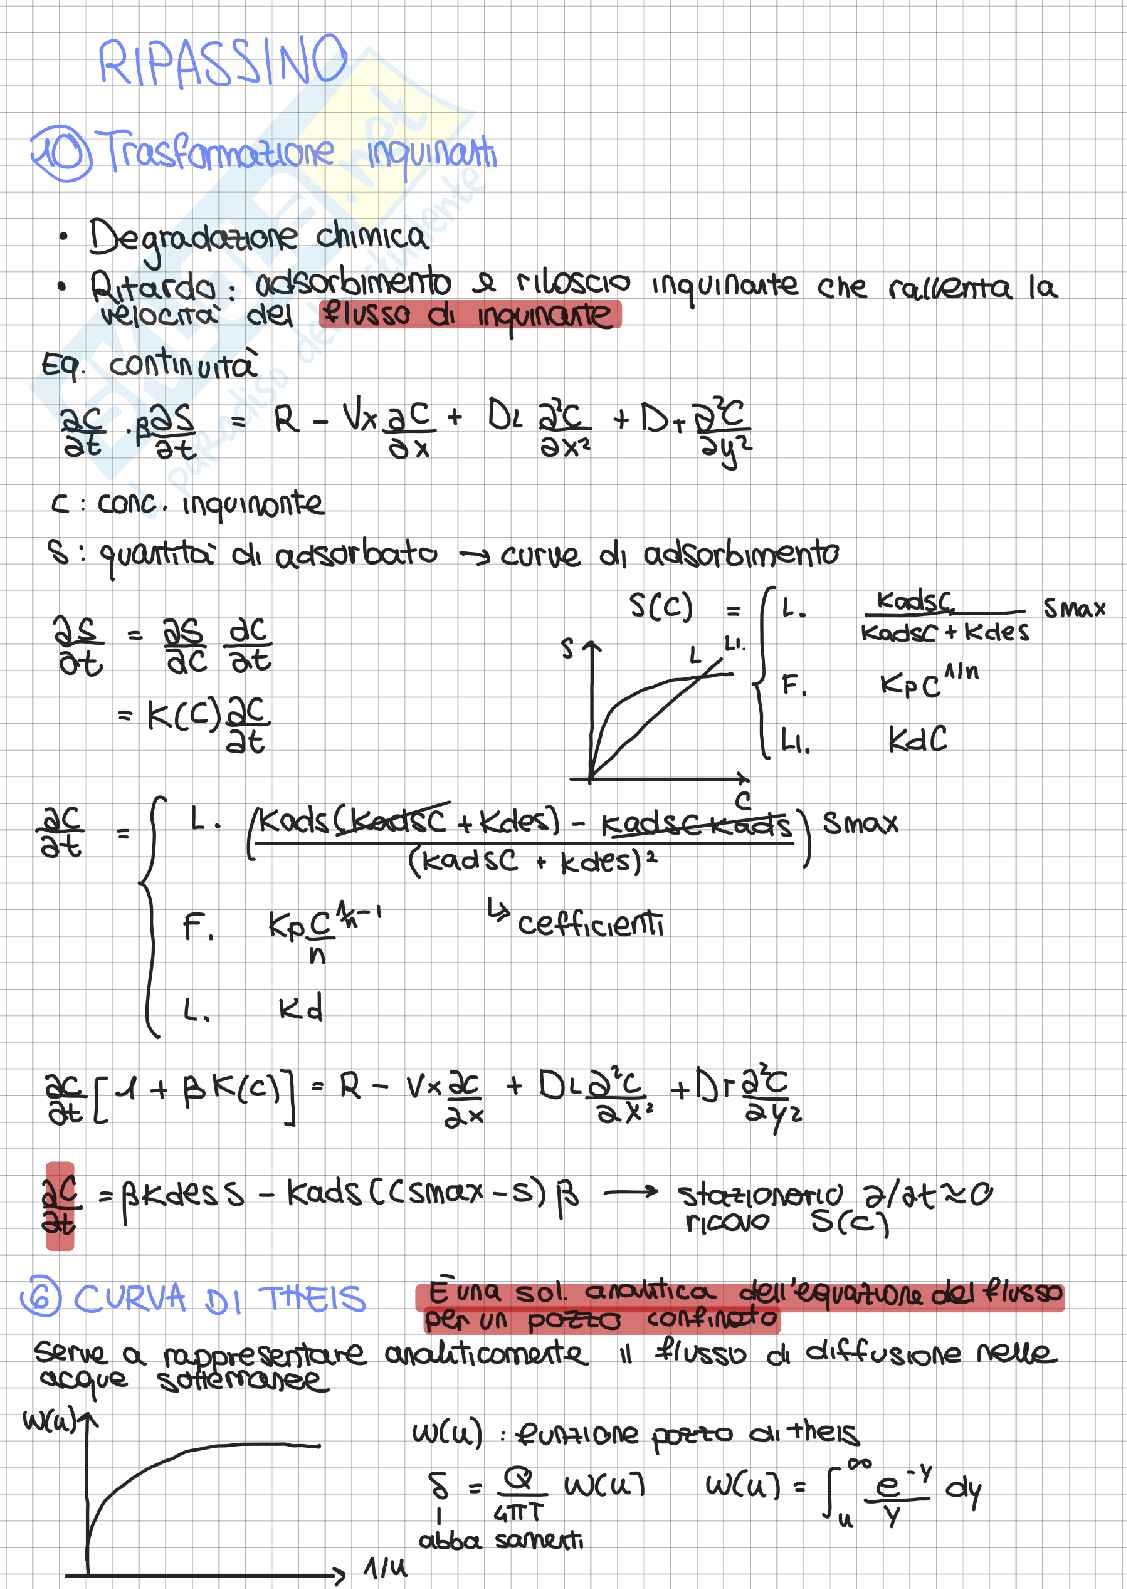 RIPASSINO
10 Trasformazione inquinanti
• Degradazione chimica
• Ritardo: adsorbimento e riloscio inquinante che rallenta la
velocità del flusso di inquinante
Eq. continuità
∂C/∂t · β ∂S/∂t = R - Vx ∂C/∂x + DL ∂²C/∂x² + DT ∂²C/∂y²
C : conc. inquinante
S : quantità di adsorbato → curve di adsorbimento
S(C) = { L. KadsC / (KadsC + Kdes) Smax
F. KpC^1/n
LI. KdC
S L LI. C
∂S/∂t = ∂S/∂C ∂C/∂t
= K(C) ∂C/∂t
∂C/∂t = { L. (Kads(KadsC + Kdes) - KadsC Kads / (KadsC + Kdes)²) Smax
F. Kp C^(1/n-1) / n ↳ cefficienti
L. Kd
∂C/∂t [1 + βK(C)] = R - Vx ∂C/∂x + DL ∂²C/∂x² + DT ∂²C/∂y²
∂C/∂t = βKdesS - Kads(C(Smax - S)β → stazionario ∂/∂t ≈ 0
ricavo S(C)
6 CURVA DI THEIS È una sol. analitica dell'equazione del flusso
per un pozzo confinato
Serve a rappresentare analiticamente il flusso di diffusione nelle
acque sotterranee
W(u) 1/u
W(u) : funzione pozzo di theis
δ = Q/4πT W(u) W(u) = ∫_u^∞ e^-y/y dy
abbassamenti
SKUOLA.net
il paradiso dello studente